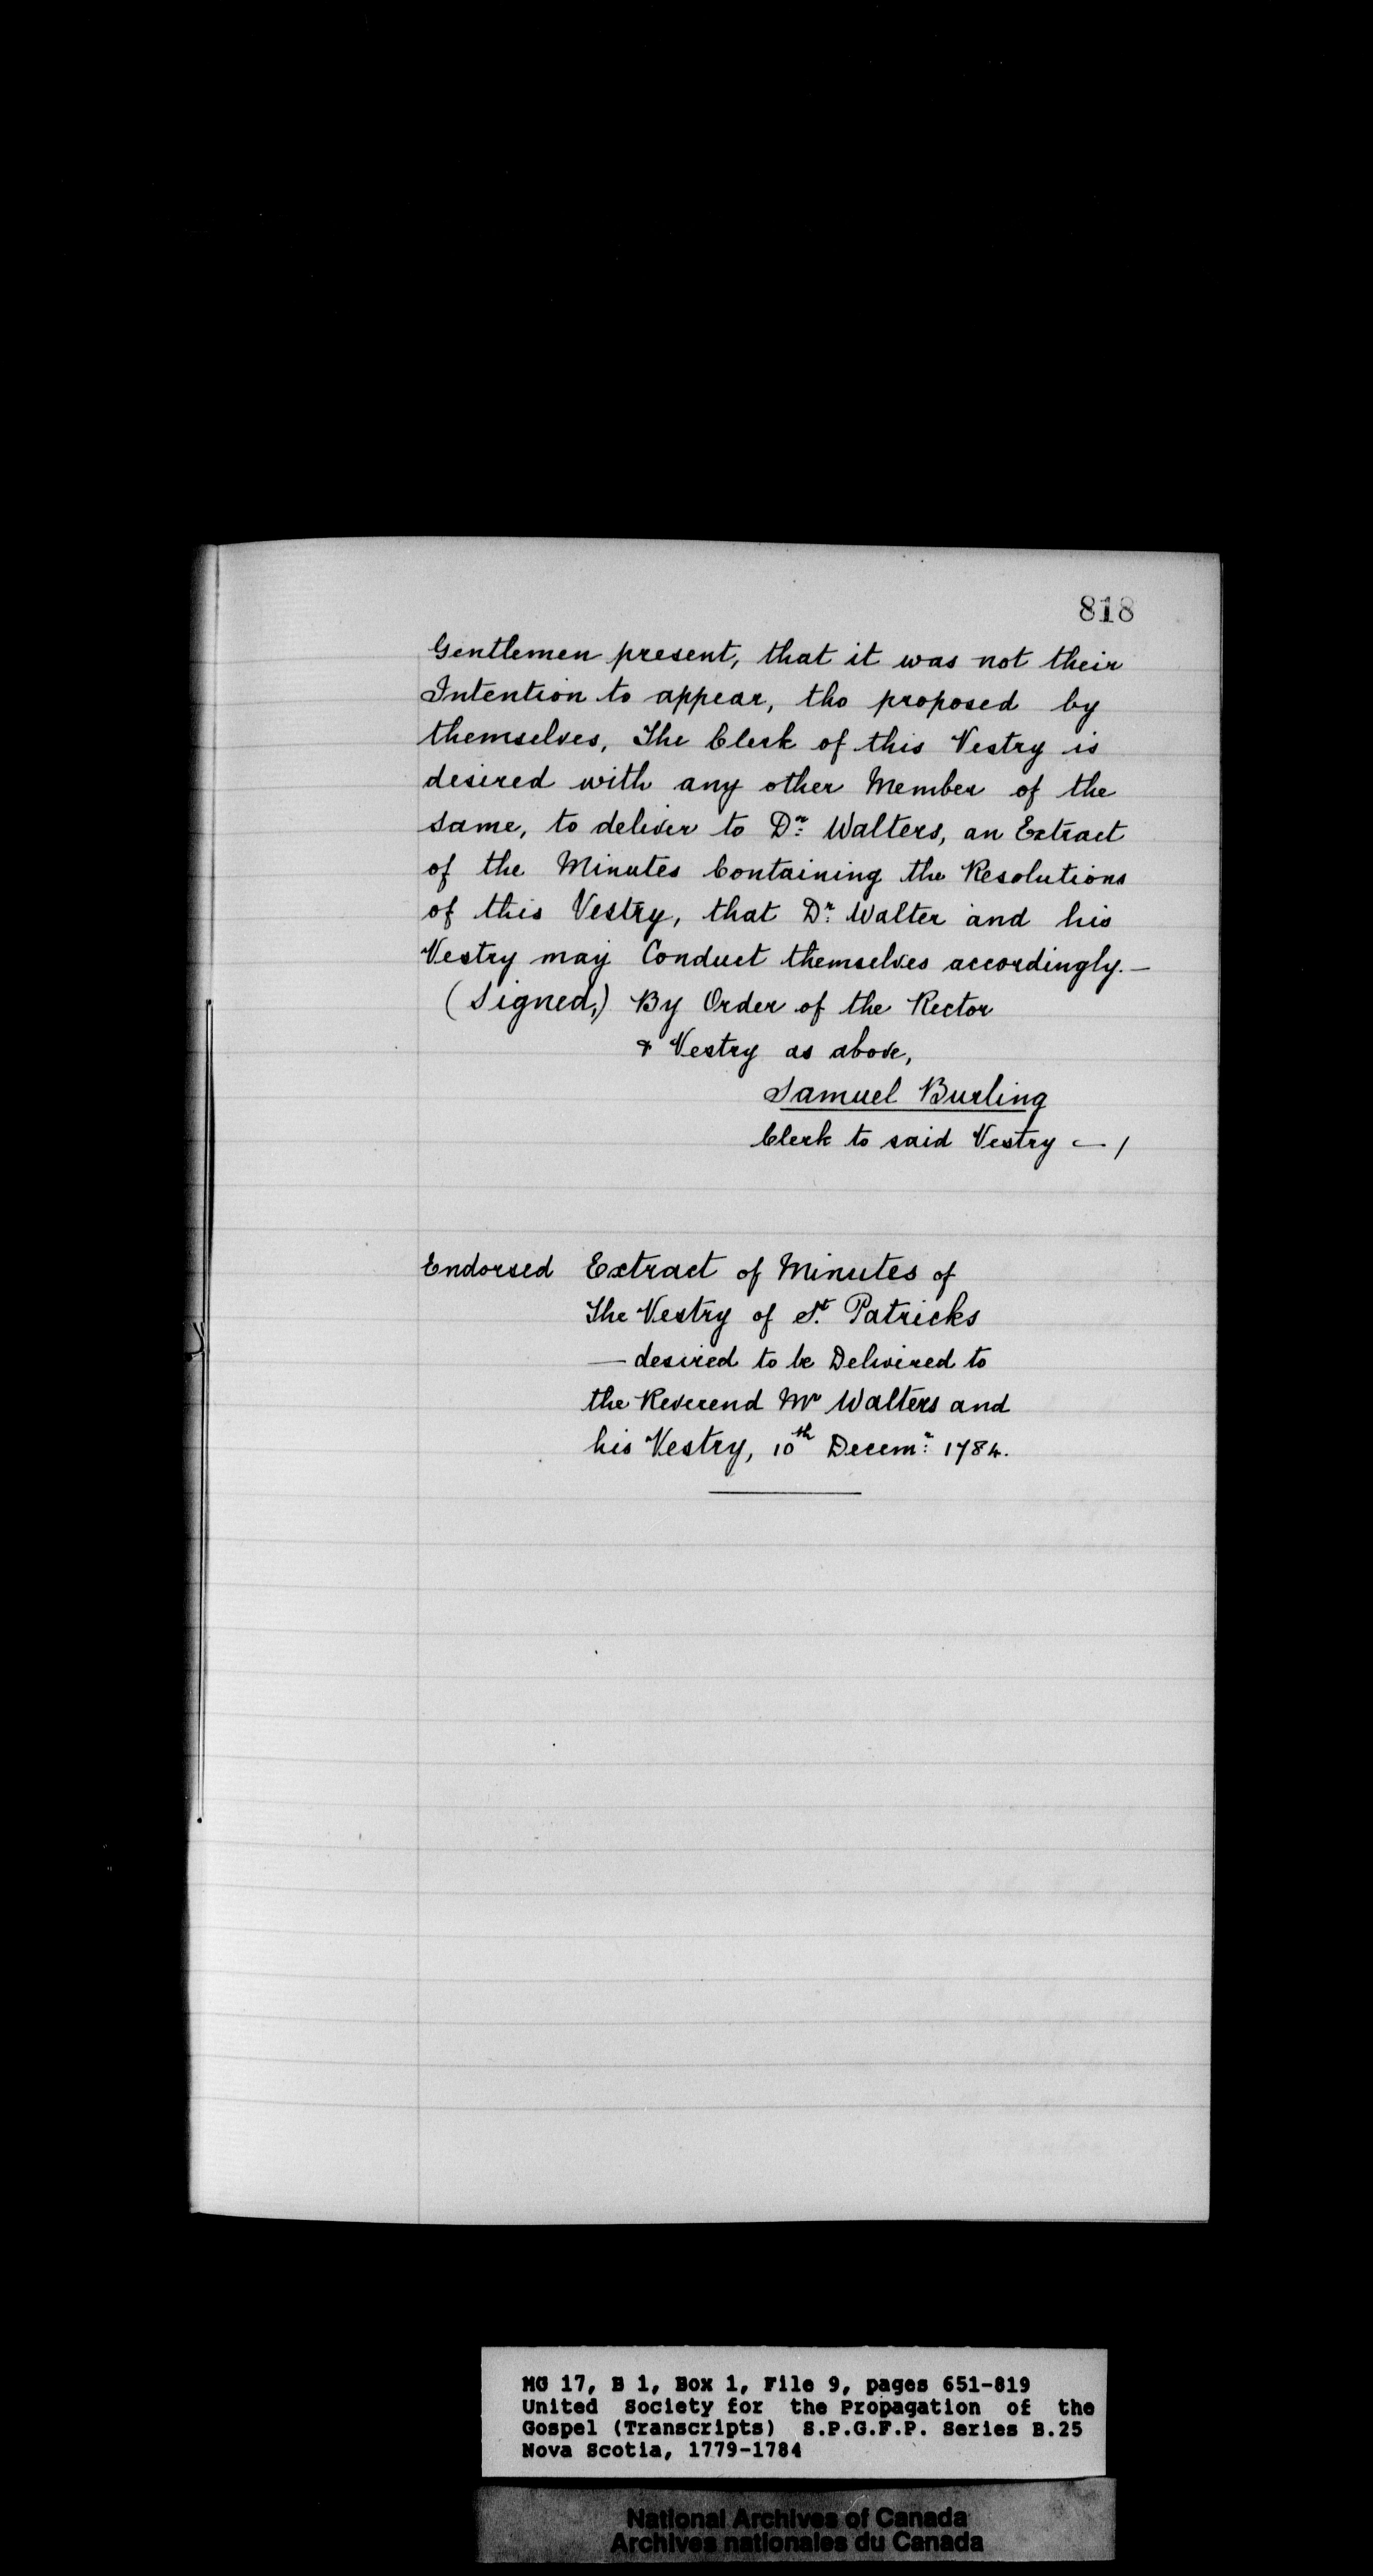 818
Gentlemen present, that it was not their
Intention to appear, tho proposed by
themselves, The Clerk of this Vestry is
desired with any other Member of the
same, to deliver to Dr. Walters, an Extract
of the Minutes Containing the Resolutions
of this Vestry, that Dr. Walter and his
Vestry may Conduct themselves accordingly.—
(Signed,) By Order of the Rector
& Vestry as above,
Samuel Burling
Clerk to said Vestry — /
Endorsed Extract of Minutes of
The Vestry of St. Patricks
— desired to be Delivered to
the Reverend Mr Walters and
his Vestry, 10th Decemr: 1784.
MG 17, B 1, Box 1, File 9, pages 651-819
United Society for the Propagation of the
Gospel (Transcripts) S.P.G.F.P. Series B.25
Nova Scotia, 1779-1784
National Archives of Canada
Archives nationales du Canada